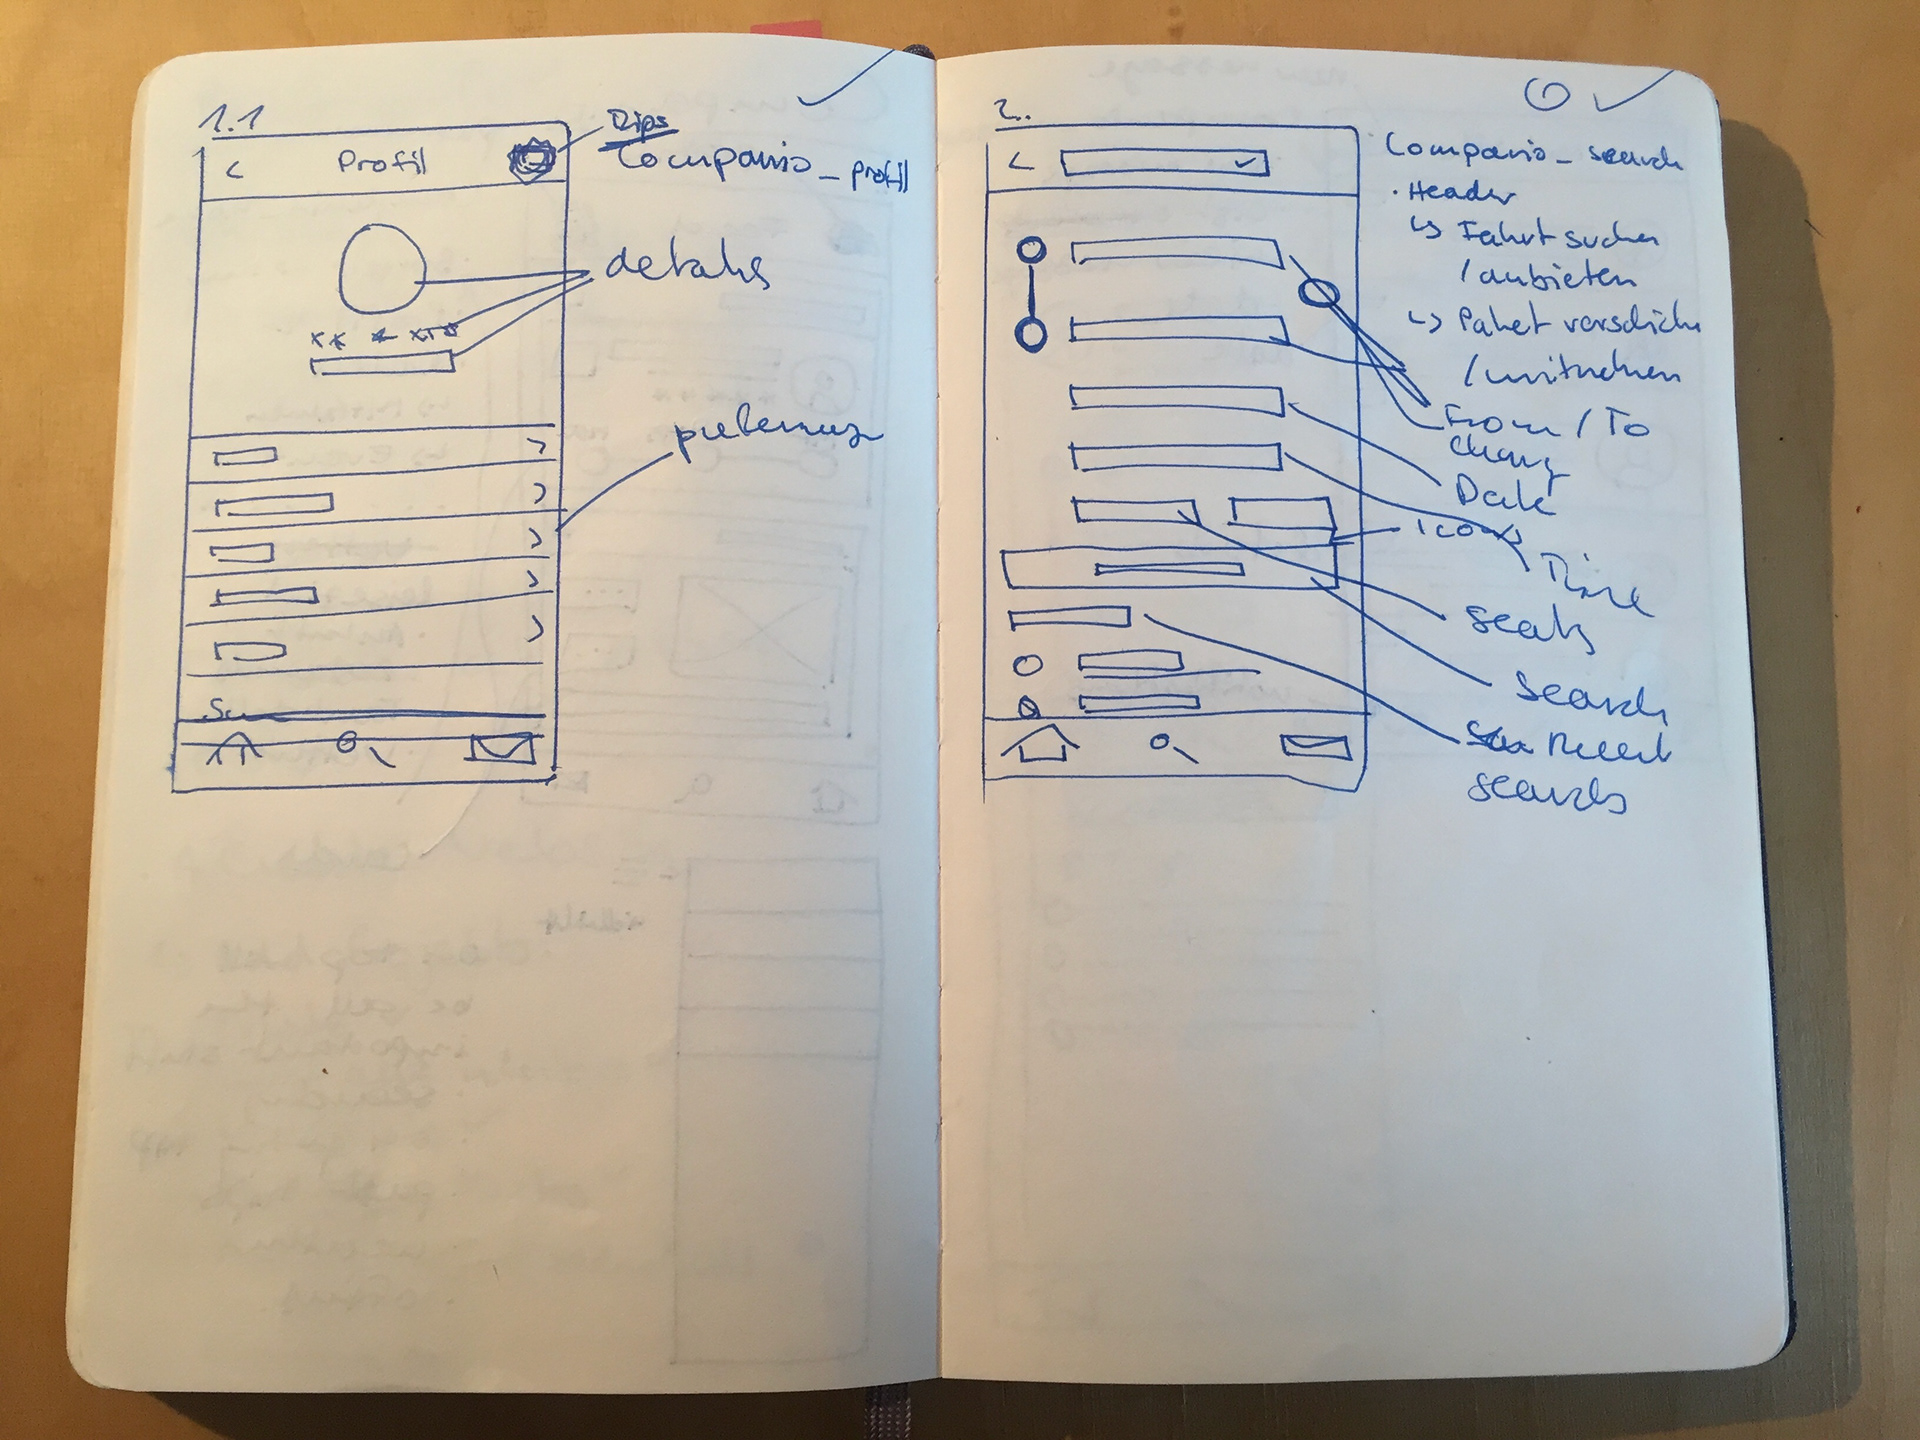 1.1
Profil
Companio_profil
details
2.
Companio_search
· Header
↳ Fahrt suchen
/anbieten
↳ Paket verschicken
/mitnehmen
From / To
Date
Icons
Time
seats
search
Recent
search